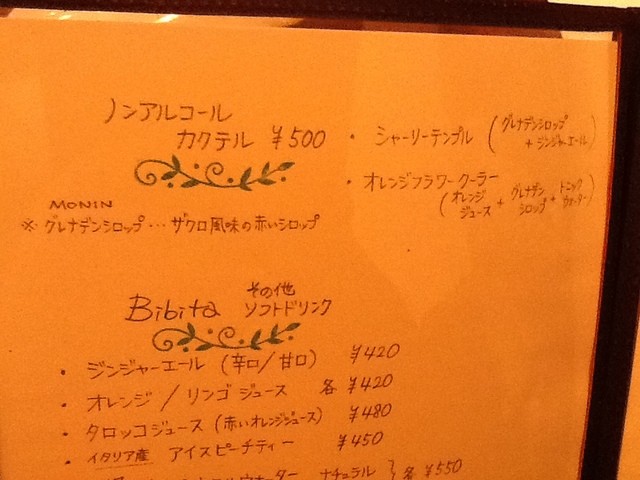 ノンアルコール
カクテル ¥500
・ シャーリーテンプル (グレナデンシロップ
+ ジンジャーエール)
・ オレンジフラワークーラー
(オレンジジュース + グレナデンシロップ + トニックウォーター)
MONIN
※ グレナデンシロップ… ザクロ風味の赤いシロップ
Bibita その他
ソフトドリンク
・ ジンジャーエール (辛口/甘口) ¥420
・ オレンジ / リンゴジュース 各 ¥420
・ タロッコジュース (赤いオレンジジュース) ¥480
・ イタリア産 アイスピーチティー ¥450
ウォーター ナチュラル } 各 ¥550